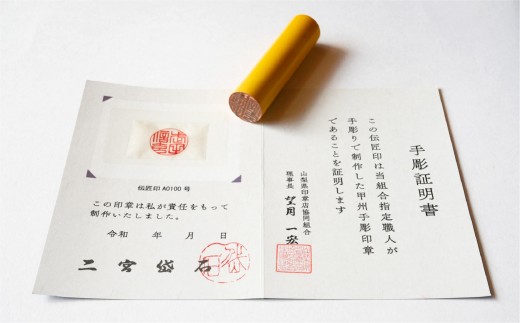 手彫証明書
この伝匠印は当組合指定職人が
手彫りで制作した甲州手彫印章
であることを証明します
山梨県印章店協同組合
理事長 望月一宏
伝匠印 A0100 号
この印章は私が責任をもって
制作いたしました。
令和 年 月 日
二宮岱石